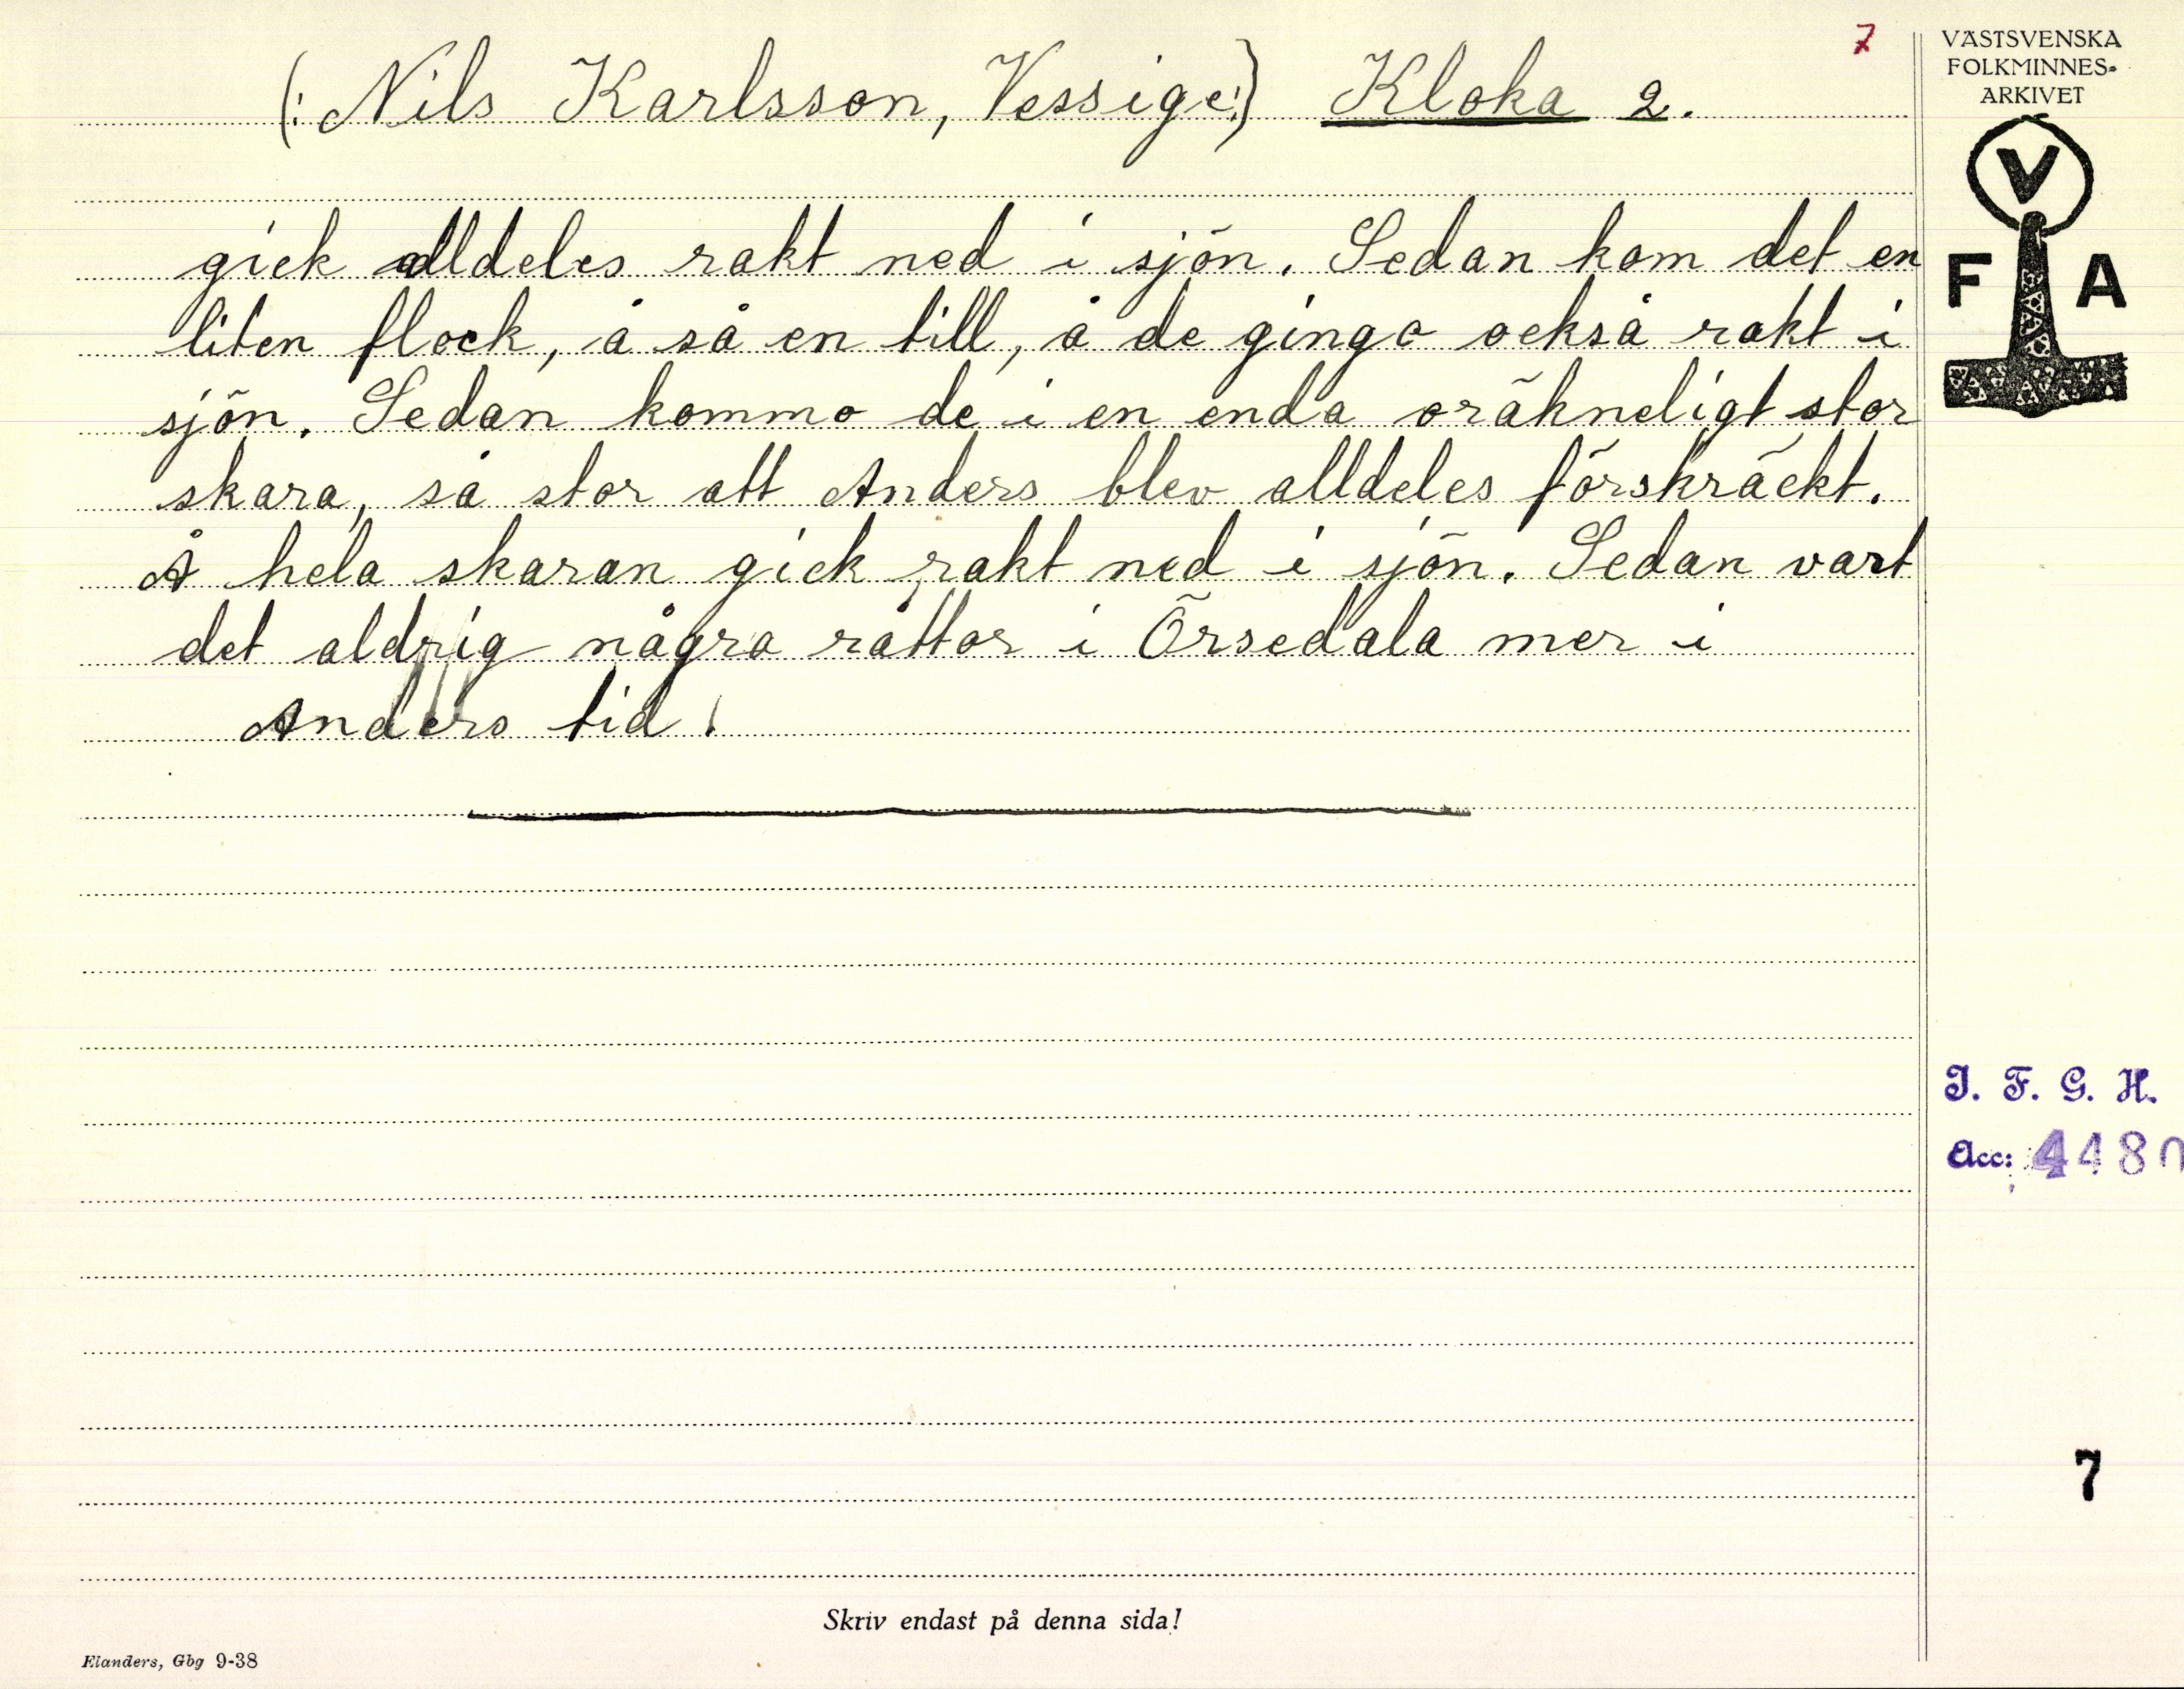 7
(: Nils Karlsson, Vessige:) Kloka 2.
gick alldeles rakt ned i sjön. Sedan kom det en
liten flock, å så en till, å de gingo också rakt i
sjön. Sedan kommo de i en enda oräkneligt stor
skara, så stor att Anders blev alldeles förskräckt.
Å hela skaran gick rakt ned i sjön. Sedan vart
det aldrig några råttor i Örsedala mer i
Anders tid!
VÄSTSVENSKA
FOLKMINNES-
ARKIVET
V
F A
I. F. G. H.
Acc: 4480
7
Skriv endast på denna sida!
Elanders, Gbg 9-38